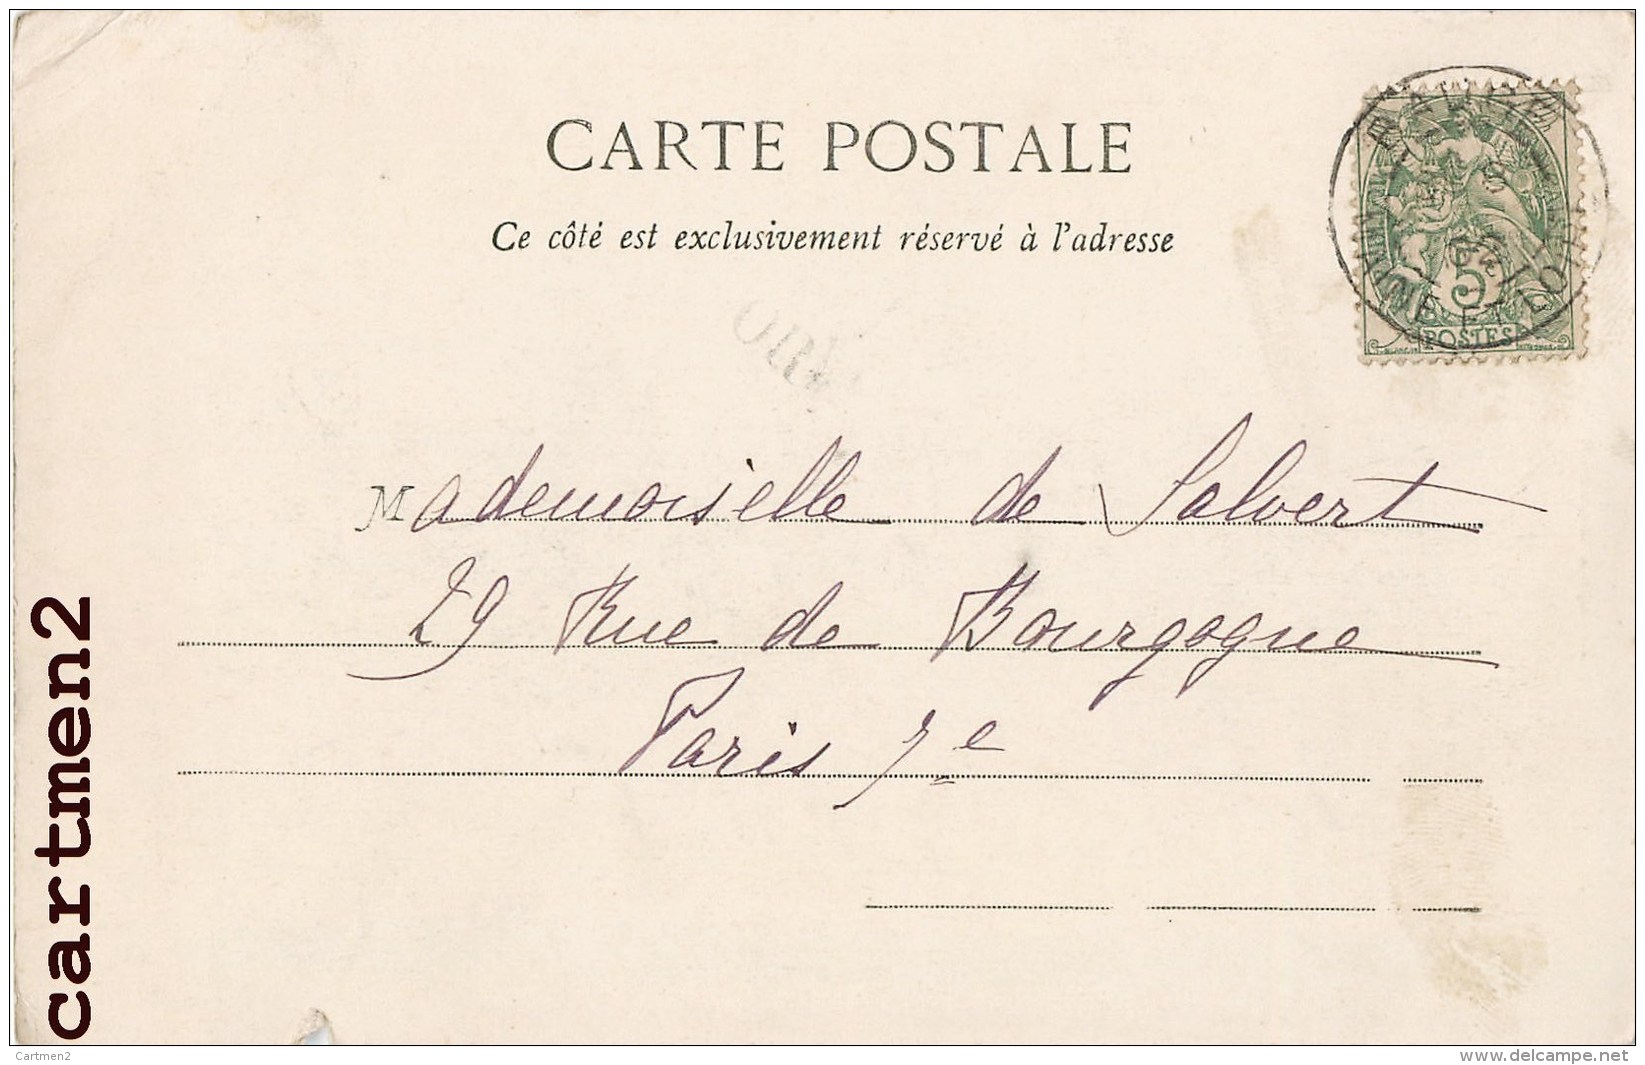 CARTE POSTALE
Ce côté est exclusivement réservé à l'adresse
5
POSTES
Mademoiselle de Salvert
29 Rue de Bourgogne
Paris 7e
cartmen2
Cartmen2
www.delcampe.net